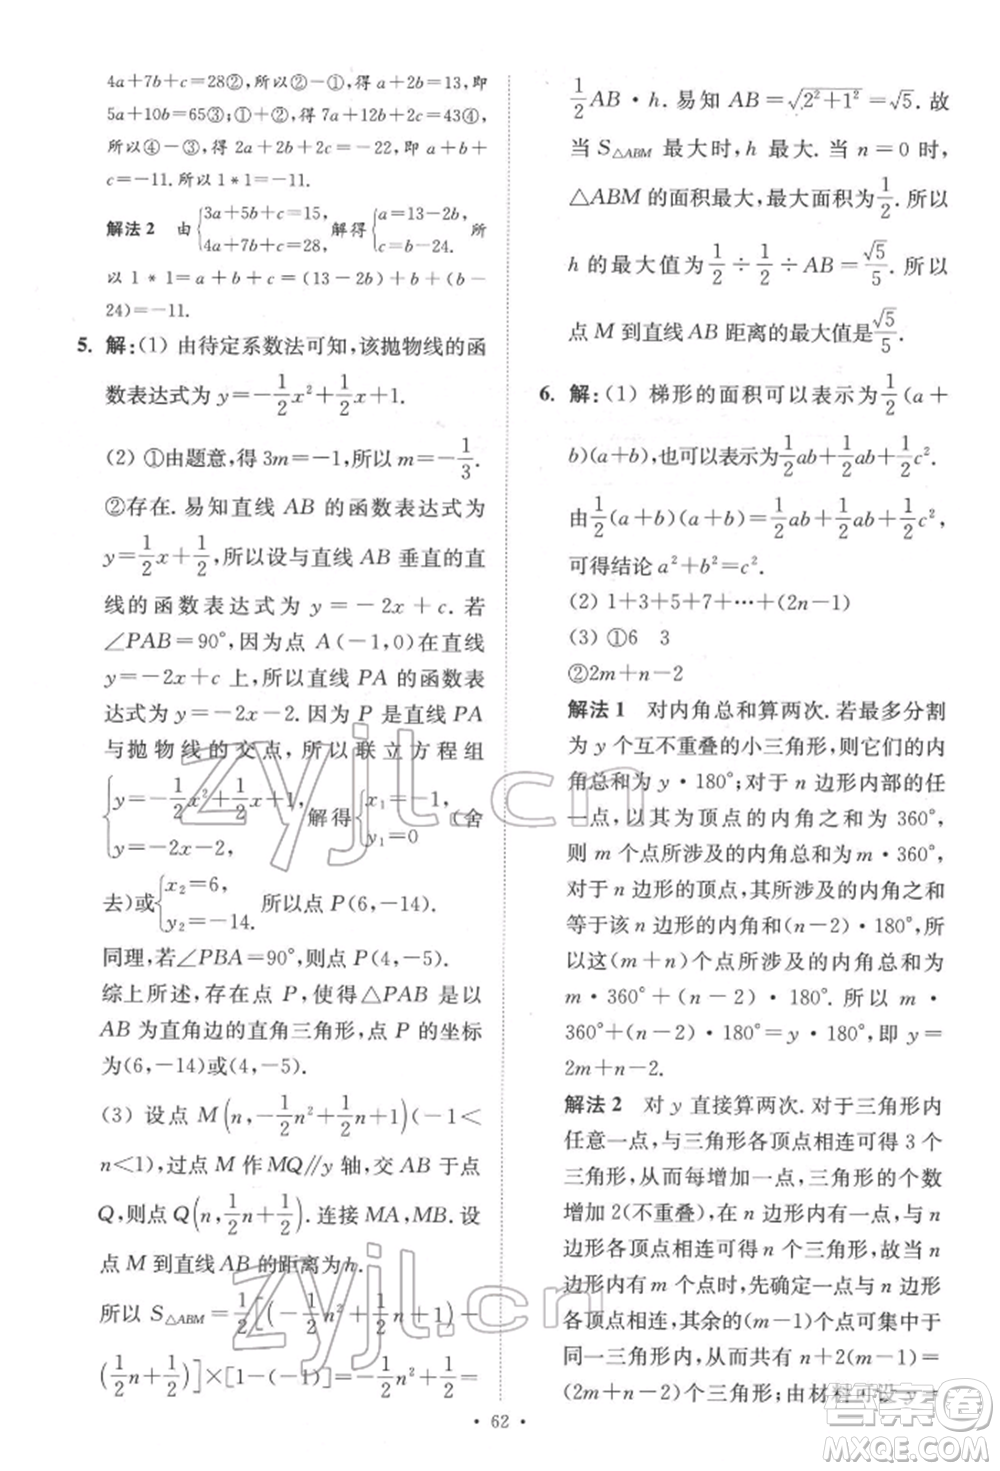 4a+7b+c=28②,所以②-①,得 a+2b=13,即
5a+10b=65③;①+②,得 7a+12b+2c=43④,
所以④-③,得 2a+2b+2c=-22,即 a+b+
c=-11.所以 1*1=-11.
解法 2 由{3a+5b+c=15, 4a+7b+c=28,解得{a=13-2b, c=b-24. 所
以 1*1=a+b+c=(13-2b)+b+(b-
24)=-11.
5. 解:(1) 由待定系数法可知,该抛物线的函
数表达式为 y=-1/2x²+1/2x+1.
(2) ①由题意,得 3m=-1,所以 m=-1/3.
②存在.易知直线 AB 的函数表达式为
y=1/2x+1/2,所以设与直线 AB 垂直的直
线的函数表达式为 y=-2x+c.若
∠PAB=90°,因为点 A(-1,0)在直线
y=-2x+c 上,所以直线 PA 的函数表
达式为 y=-2x-2.因为 P 是直线 PA
与抛物线的交点,所以联立方程组
{y=-1/2x²+1/2x+1, y=-2x-2, 解得{x₁=-1, y₁=0 (舍
去)或{x₂=6, y₂=-14. 所以点 P(6,-14).
同理,若∠PBA=90°,则点 P(4,-5).
综上所述,存在点 P,使得△PAB 是以
AB 为直角边的直角三角形,点 P 的坐标
为(6,-14)或(4,-5).
(3) 设点 M(n,-1/2n²+1/2n+1)(-1<
n<1),过点 M 作 MQ∥y 轴,交 AB 于点
Q,则点 Q(n,1/2n+1/2).连接 MA,MB.设
点 M 到直线 AB 的距离为 h.
所以 S△ABM=1/2[(-1/2n²+1/2n+1)-
(1/2n+1/2)]×[1-(-1)]=-1/2n²+1/2=
1/2AB·h.易知 AB=√(2²+1²)=√5.故
当 S△ABM 最大时,h 最大.当 n=0 时,
△ABM 的面积最大,最大值为1/2.所以
h 的最大值为1/2÷1/2÷AB=√5/5.所以
点 M 到直线 AB 距离的最大值是√5/5.
6. 解:(1) 梯形的面积可以表示为1/2(a+
b)(a+b),也可以表示为1/2ab+1/2ab+1/2c².
由1/2(a+b)(a+b)=1/2ab+1/2ab+1/2c²,
可得结论 a²+b²=c².
(2) 1+3+5+7+…+(2n-1)
(3) ①6 3
②2m+n-2
解法 1 对内角总和算两次.若最多分割
为 y 个互不重叠的小三角形,则它们的内
角总和为 y·180°;对于 n 边形内部的任
一点,以其为顶点的内角之和为 360°,
则 m 个点所涉及的内角和为 m·360°,
对于 n 边形的顶点,其所涉及的内角和
等于该 n 边形的内角和(n-2)·180°,
故这(m+n)个点所涉及的内角和为
m·360°+(n-2)·180°.所以 m·
360°+(n-2)·180°=y·180°,即 y=
2m+n-2.
解法 2 对 y 直接算两次.对于三角形内
任意一点,与三角形各顶点相连可得 3 个
三角形,从而每增加一点,三角形的个数
增加 2(不重叠),n 边形内有一点,与 n
边形各顶点相连可得 n 个三角形,故当 n
边形内有 m 个点时,先确定一点与 n 边形
各顶点相连,其余的(m-1)个点可集中于
同一三角形内,一共有 n+2(m-1)=
(2m+n-2)个三角形;由材料可设 y=
·62·
zyjl.cn
zyjl.cn
答案圈
MXQE.COM